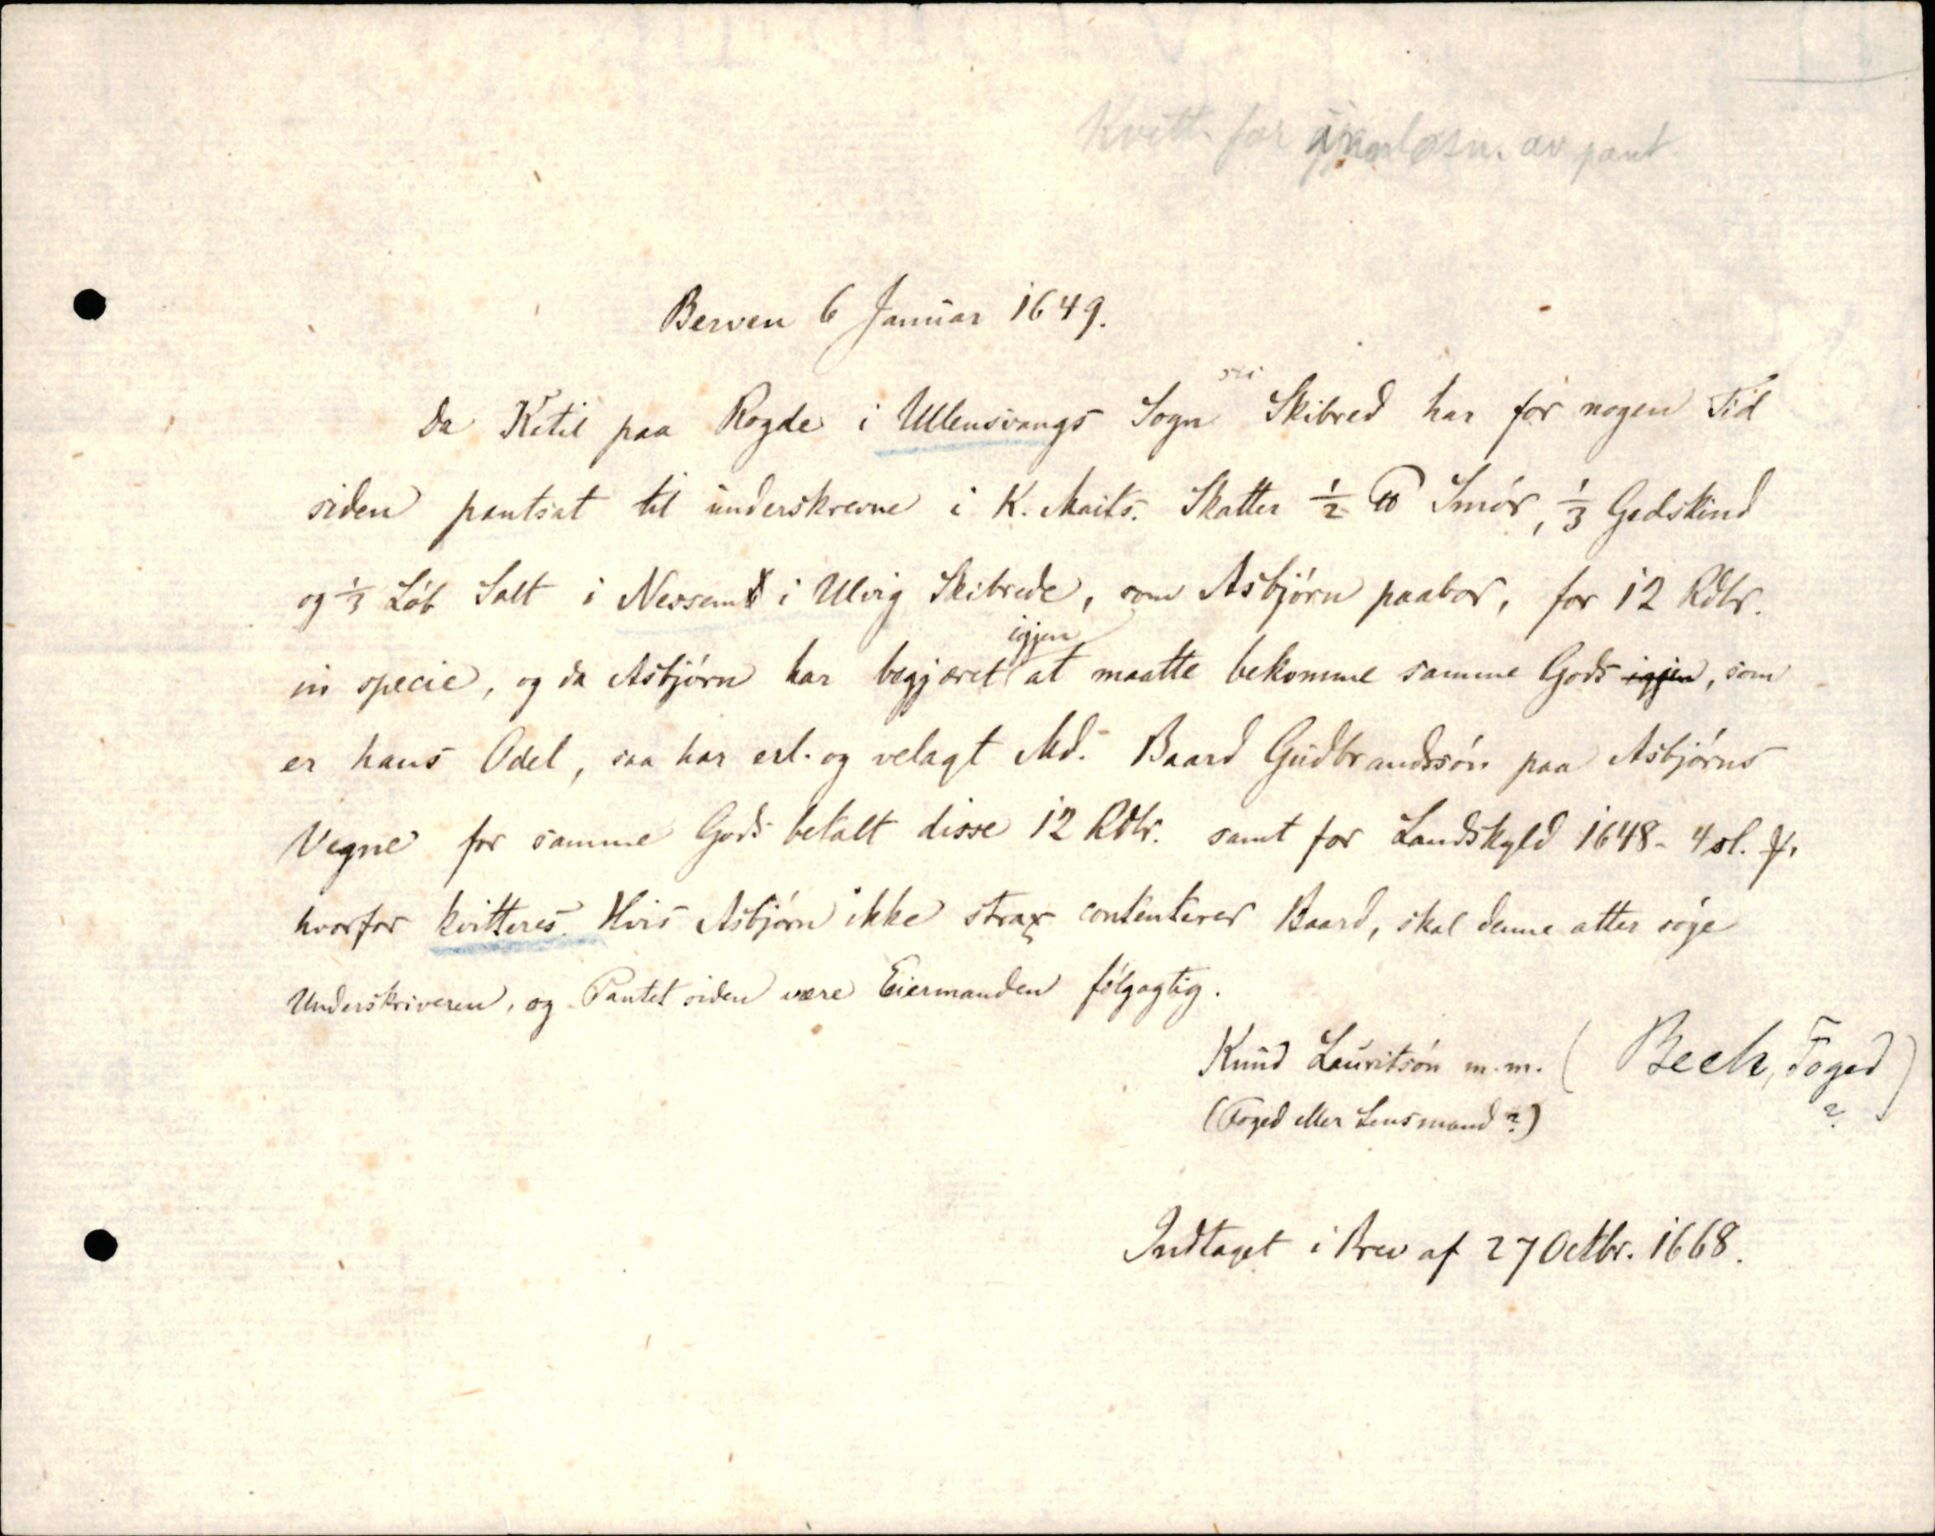 Kvitt. for gjenløsn. av pant.
Berven 6 Januar 1649.
Da Ketil paa Rogde i Ullensvangs Sogn Skibred har for nogen Tid
siden pantsat til underskrevne i K. Maits. Skatter ½ ℔ Smør, ⅓ Gedskind
og ⅓ Løb Salt i Nessem i Ulvig Skibrede, som Asbjørn paabor, for 12 Rdlr.
in specie, og da Asbjørn har begjæret igjen at maatte bekomme samme Gods igjen, som
er hans Odel, saa har erl. og velagt Md. Baard Gudbrandssøn paa Asbjørns
Vegne for samme Gods betalt disse 12 Rdlr. samt for Landskyld 1648 - 4 sl.
hvorfor kvitteres. Hvis Asbjørn ikke strax contenterer Baard, skal denne atter søge
Underskriveren, og Pantet siden være Eiermanden følgagtig.
Knud Lauritsøn m.m. (Bech, Foged ?)
(Foged eller Lensmand?)
Indtaget i Brev af 27 Octbr. 1668.